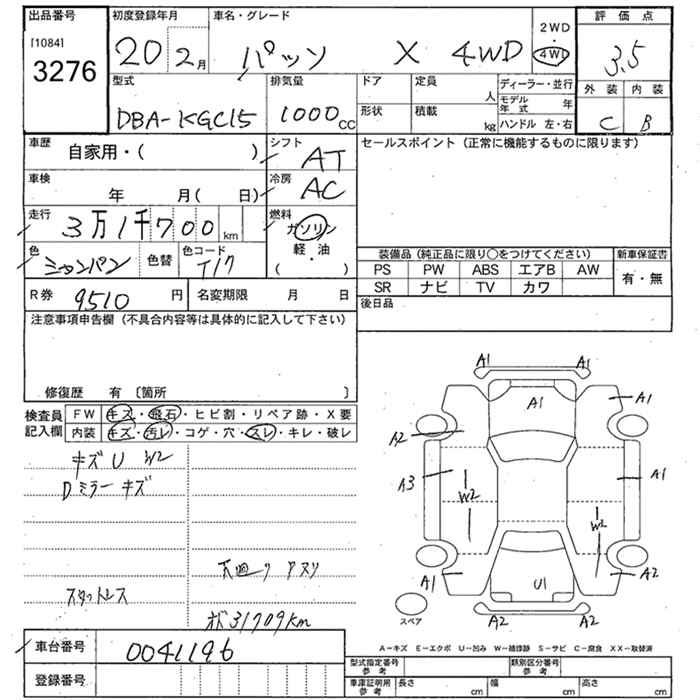 出品番号 初度登録年月 車名・グレード 2WD 評価点
[1084] 3276 20 2月 パッソ X 4WD 4WD 3.5
型式 排気量 ドア 定員 人 ディーラー・並行 外装 内装
DBA-KGC15 1000cc 形状 積載 kg モデル年式 年 ハンドル 左・右 C B
車歴 自家用・( ) シフト AT セールスポイント (正常に機能するものに限ります)
車検 年 月( 日) 冷房 AC
走行 3万1千700km 燃料 ガソリン 軽・油 ( )
色 シャンパン 色替 色コード T17 装備品 (純正品に限り○をつけてください) 新車保証書
PS PW ABS エアB AW 有・無
R券 9510円 名変期限 月 日 SR ナビ TV カワ
注意事項申告欄 (不具合内容等は具体的に記入して下さい) 後日品
修復歴 有 〔箇所 〕
検査員記入欄 FW キズ・飛石・ヒビ割・リペア跡・X要
内装 キズ・汚レ・コゲ・穴・スレ・キレ・破レ
キズ U W2
Dミラーキズ
スタットレス
31709km
A1 A1
A1 A1
A2
A3 W2 A1
W2
A1 U1 A2
スペア A2 A2
A-キズ E-エクボ U-凹み W-補修跡 S-サビ C-腐食 XX-取替済
車台番号 0041196
登録番号
型式指定番号 参考 類別区分番号 参考
車庫証明用 参考 長さ cm 幅 cm 高さ cm